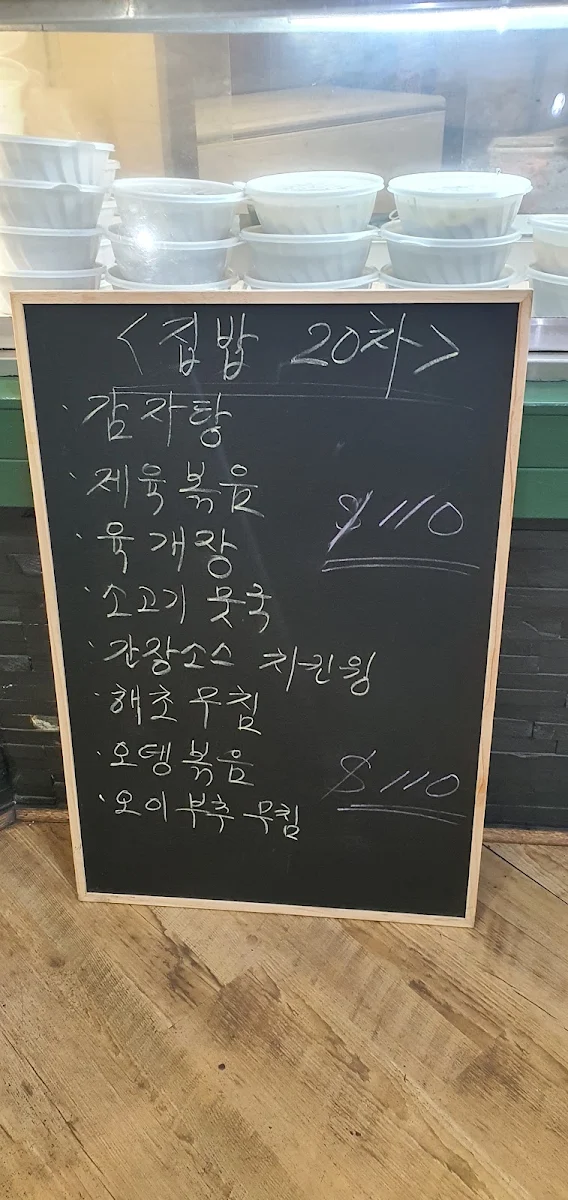 <집밥 20차>
· 감자탕
· 제육볶음
$110
· 육개장
· 소고기 뭇국
· 간장소스 치킨윙
· 해초무침
· 오뎅볶음
$110
· 오이부추무침